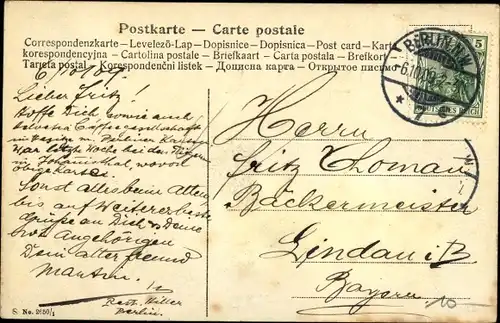 Postkarte — Carte postale
Correspondenzkarte — Levelező-Lap — Dopisnice — Dopisnica — Post card — Karta
korespondencyjna — Cartolina postale — Briefkaart — Carta postala — Brefkort
Tarjeta postal — Korespondenční listek — Дописна карта — Открытое письмо
BERLIN N.W.
6.10.09
5
DEUTSCHES REICH
6/10/09
Lieber Fritz!
Hoffe Dich sowie auch
war letzte Woche bei den
in Johannisthal wovon
obige Karte.
Sonst alles beim Alten
bis auf Weiteres beste
Grüße an Dich & Deine
Angehörigen
Dein alter Freund
Martin
Berlin.
Herrn
Fritz Thoman
Bäckermeister
Lindau i/B
Bayern
10
S. No. 2680/1